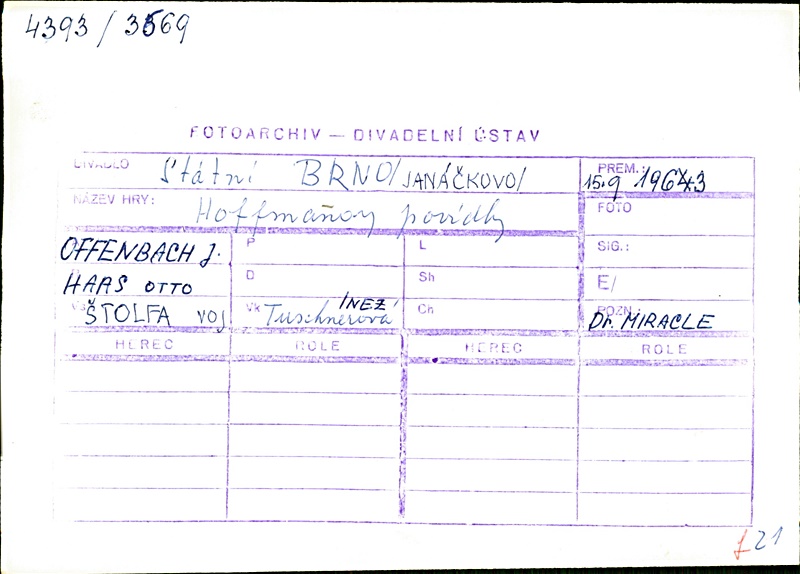 4393 / 3569
FOTOARCHIV — DIVADELNÍ ÚSTAV
DIVADLO Státní BRNO /JANÁČKOVO/ PREM.: 15.9 1963
NÁZEV HRY: Hoffmanovy povídky FOTO
OFFENBACH J. P L SIG.:
HAAS OTTO D Sh E/
ŠTOLFA VOJ Vk Tuschnerová INEZ Ch POZN.: Dr. MIRACLE
HEREC ROLE HEREC ROLE
21